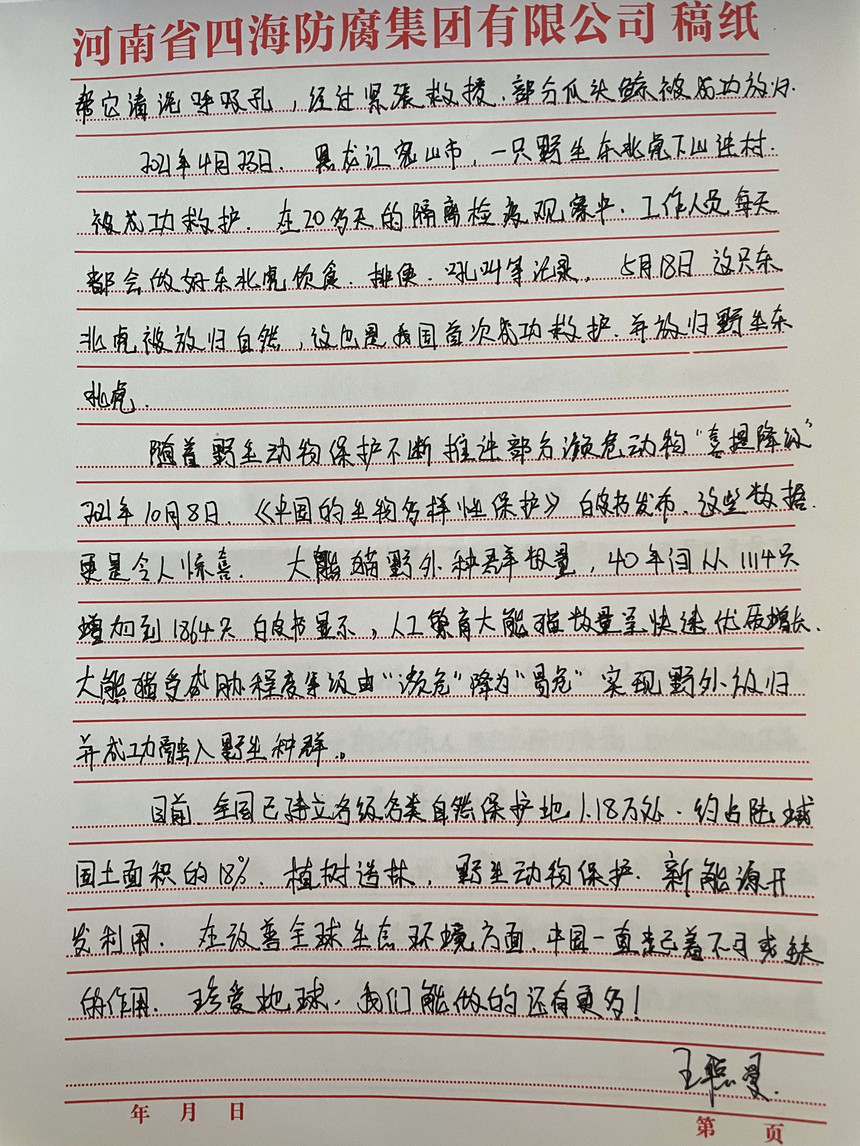 河南省四海防腐集团有限公司 稿纸
帮它清洗呼吸孔，经过紧张救援，部分瓜头鲸被成功放归.
2021年4月23日.黑龙江密山市，一只野生东北虎下山进村.
被成功救护.在20多天的隔离检疫观察中.工作人员每天
都会做好东北虎饮食.排便.吼叫等记录。5月18日 这只东
北虎被放归自然，这也是我国首次成功救护.并放归野生东
北虎.
随着野生动物保护不断推进部分濒危动物“喜提降级”
2021年10月8日.《中国的生物多样性保护》白皮书发布.这些数据
更是令人惊喜.大熊猫野外种群数量，40年间从1114只
增加到1864只 白皮书显示，人工繁育大熊猫数量呈快速优质增长.
大熊猫受威胁程度等级由“濒危”降为“易危” 实现野外放归
并成功融入野生种群。
目前.全国已建立各级各类自然保护地1.18万处.约占陆域
国土面积的18%.植树造林，野生动物保护.新能源开
发利用.在改善全球生态环境方面.中国一直起着不可或缺
的作用.珍爱地球.我们能做的还有更多！
年 月 日
第 页